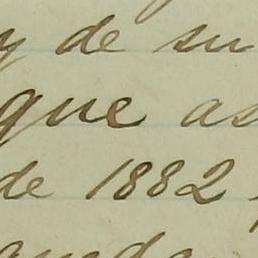 y de su
que as
de 1882